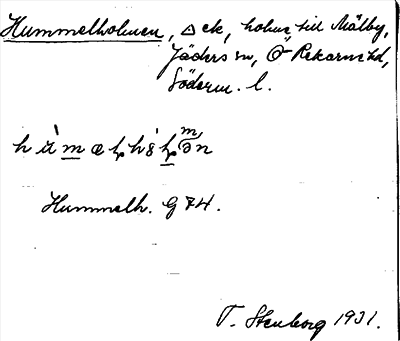 Hummelholmen, △ ek, holme till Mälby,
Jäders sn, Ö Rekarne hd,
Söderm. l.
Hummelh. G 74.
T. Stenborg 1931.